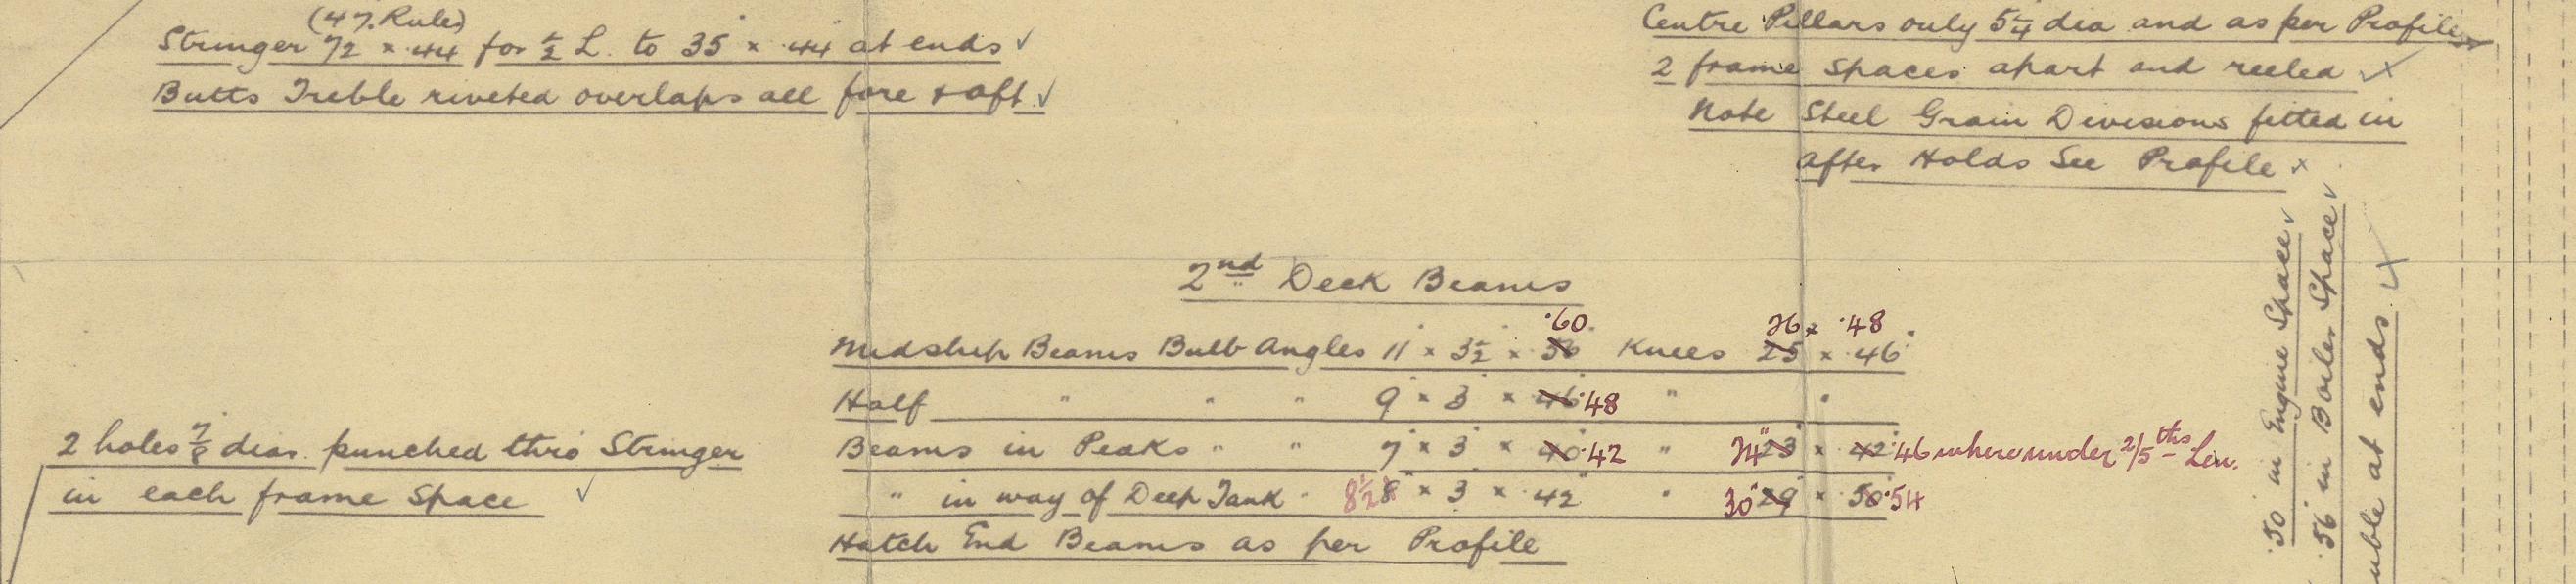 (47. Rule)
Stringer 72 × .44 for ½ L. to 35 × .44 at ends ✓
Butts Treble riveted overlaps all fore & aft ✓
Centre Pillars only 5¼ dia and as per Profile
2 frame spaces apart and reeled
Note Steel Grain Divisions fitted in
after Holds See Profile
2nd Deck Beams
.60 26 × .48
Midship Beams Bulb Angles 11 × 3½ × .56 Knees 25 × .46
Half " " " 9 × 3 × .46 .48 " "
Beams in Peaks " " 7 × 3 × .40 .42 " 24" 23 × .42 .46 where under 2/5ths Len.
" in way of Deep Tank " 8½ 8 × 3 × .42 " 30" 29 × .50 .54
Hatch End Beams as per Profile
2 holes ⅞ dia. punched thro Stringer
in each frame space ✓
.50 in Engine Space ✓
.56 in Boiler Space ✓
uble at ends